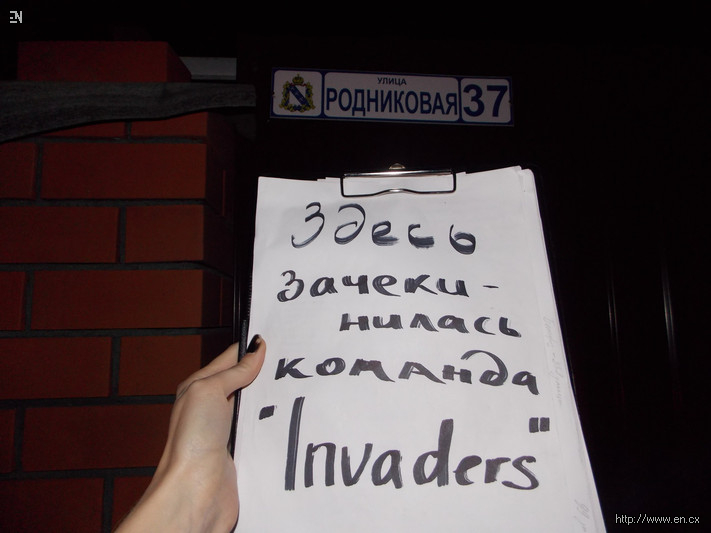 EN
УЛИЦА
РОДНИКОВАЯ 37
Здесь
зачеки-
нилась
команда
"Invaders"
http://www.en.cx